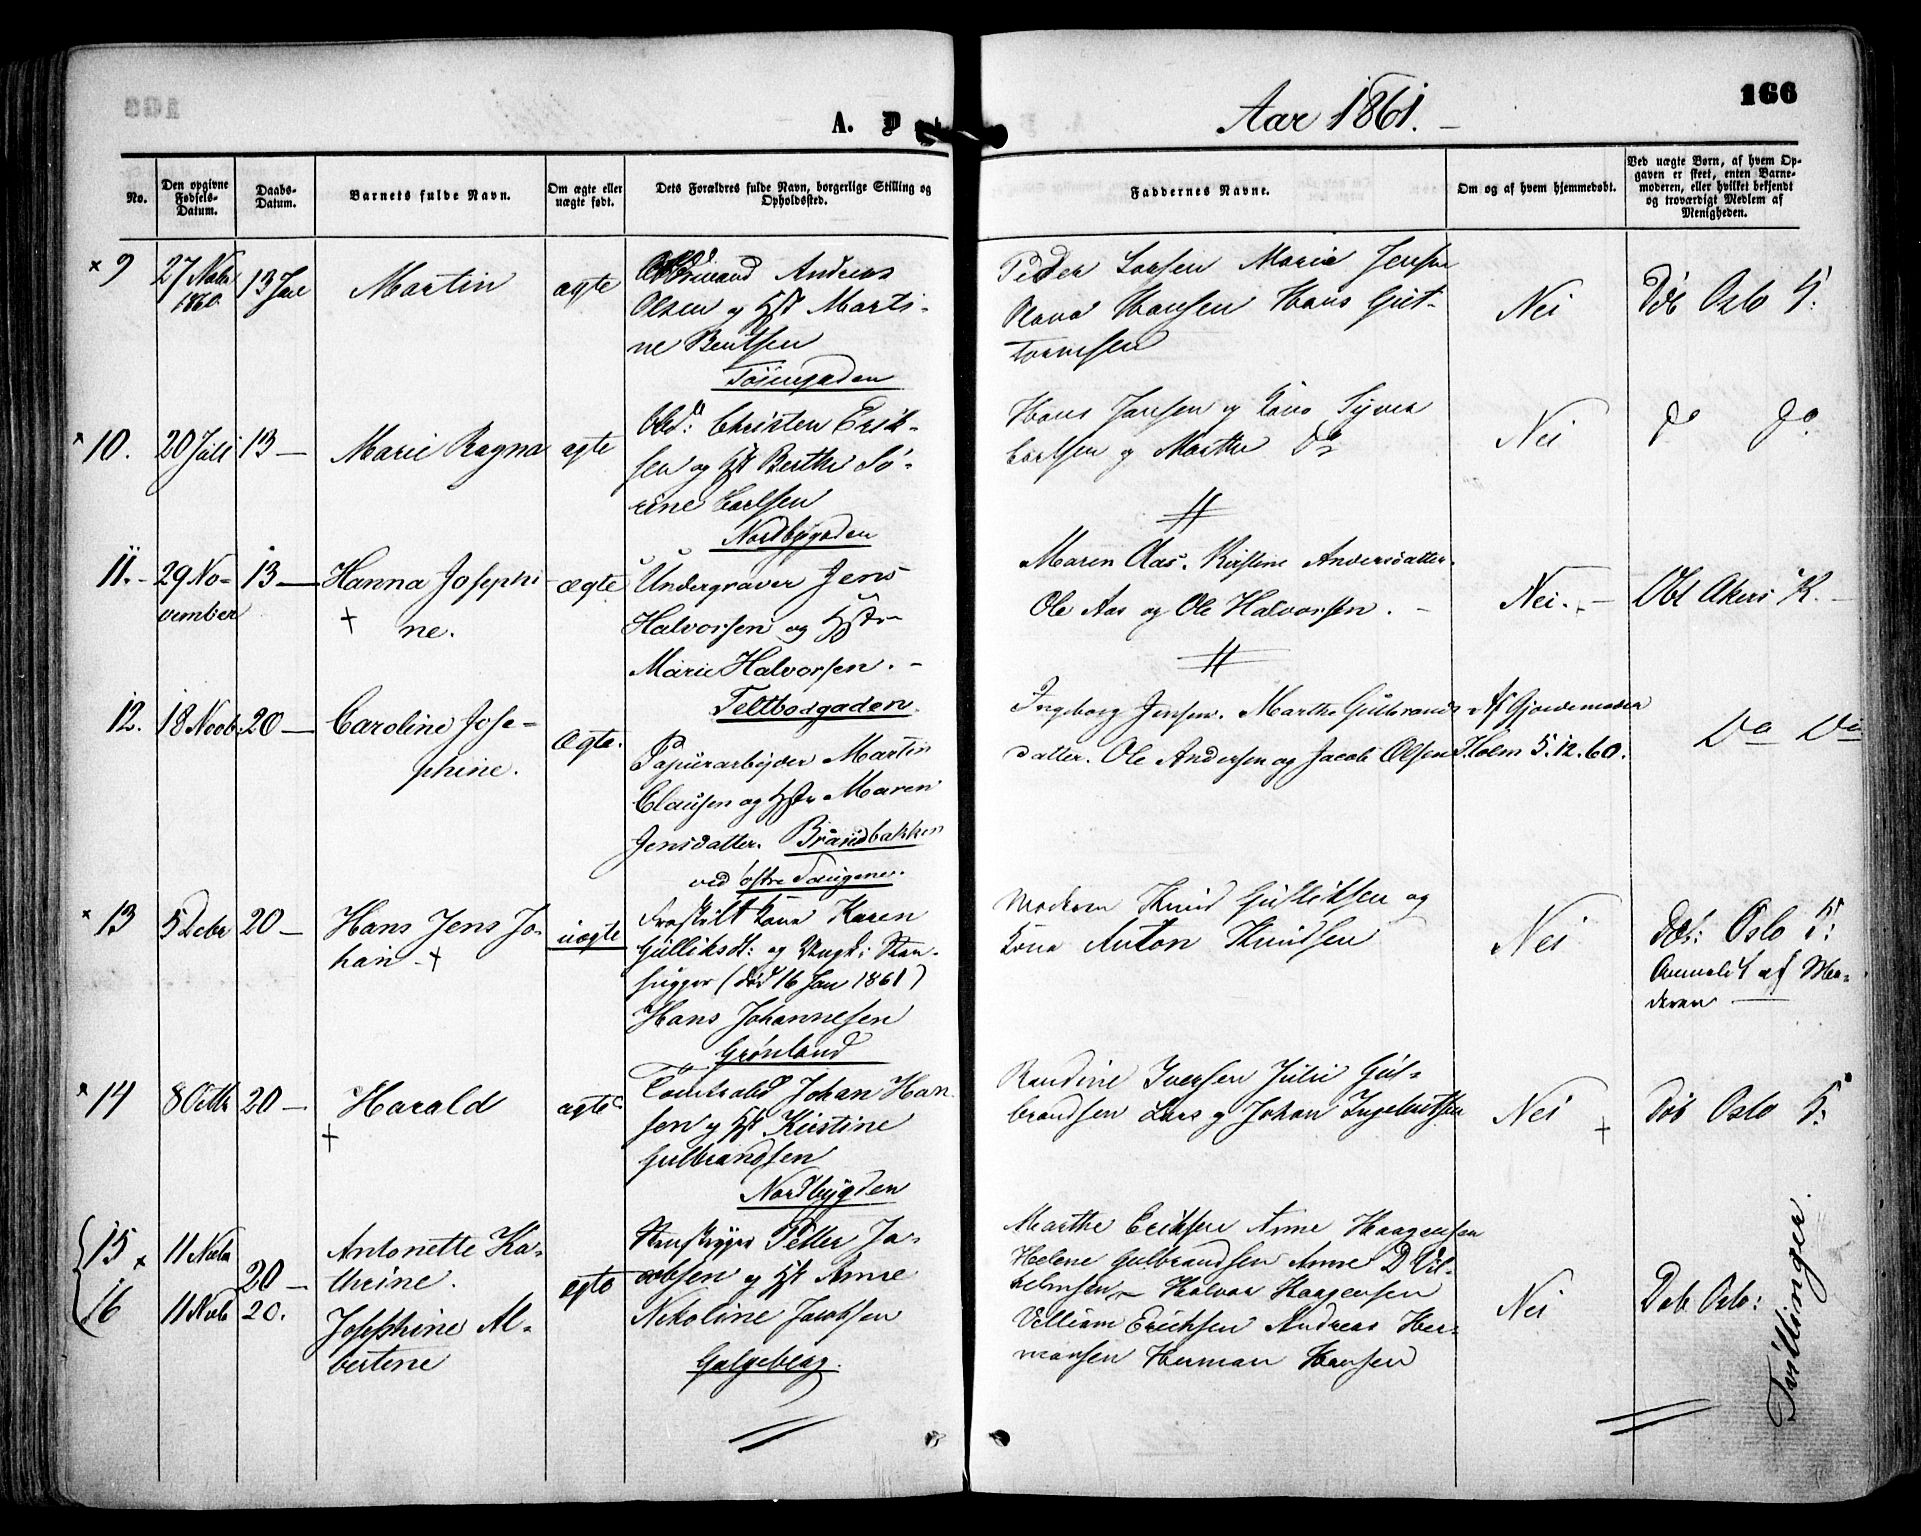 166
Aar 1861.
A. D
No.
Den opgivne Fødsels-Datum.
Daabs-Datum.
Barnets fulde Navn.
Om ægte eller uægte født.
Dets Forældres fulde Navn, borgerlige Stilling og Opholdssted.
Faddernes Navne.
Om og af hvem hjemmedøbt.
Ved uægte Børn, af hvem Opgaven er skeet, enten Barnemoderen, eller hvilket bekjendt og troværdigt Medlem af Menigheden.
9
27 Nobr 1860.
13 Jan
Martin
ægte
Andreas
Olsen og Hst Marti-
ne Bentsen
Töiengaden
Peder Larsen Marie Jensen
Olava Hansen Hans Gut-
tormsen
Nei
Döb Oslo K.
10.
20 Juli
13 —
Marie Ragna
ægte
Abd: Christen Erik-
sen og Hst Berthe Sö-
rine Carlsen
Nordbygaden
Hans Jansen og Kone Syver
Carlsen og Marthe Do
Nei
Do Do
11. -
29 No-
vember
13 —
Hanna Josephi-
ne.
Ægte
Undergraver Jens
Halvorsen og Hstr
Marie Halvorsen. -
Teltbogaden.
Maren Aas. Kirstine Andersdatter.
Ole Aas og Ole Halvorsen. -
Nei. -
Döbt Akers K. -
12.
18 Novb.
20 —
Caroline Jose-
phine.
Ægte.
Papirarbejder Martin
Clausen og Hstr Maren
Jensdatter. Brandbakken
ved östre Taugene.
Ingeborg Jensen. Marthe Gulbrands-
datter. Ole Andersen og Jacob Olsen
Af Gjordemoder
Holm 5.12.60.
Do Do
13
5 Debr
20 —
Hans Jens Jo-
han -
uægte
Fraskilt Kone Karen
Gulliksdt: og Ungk: Sten-
hugger (död 16 Jan 1861)
Hans Johannesen
Grönland
Moderen Knud Gulliksen og
Kone Anton Knudsen
Nei
Döb: Oslo K:
Anmeldt af Mo-
deren —
14
8 Octbr
20 —
Harald
ægte
Tomtearbd Johan Han
sen og Hst Kirstine
Gulbrandsen
Nordbygden
Randine Iversen Julie Gul-
brandsen Lars og Johan Ingebretsen
Nei
Döb Oslo K:
15
11 Nobr
20 —
Antonette Ka-
thrine.
ægte
Petter Ja-
cobsen og Hst Anne
Nikoline Jacobsen
Galgeberg.
16
11 Nobr
20.
Josephine Al-
bertine
Marthe Eriksen Anne Haagensen
Helene Gulbrandsen Anne D Vil-
helmsen - Halvor Haagensen
Villiam Erichsen Andreas Her-
mansen Herman Hansen
Nei
Döb Oslo:
Tvillinger.